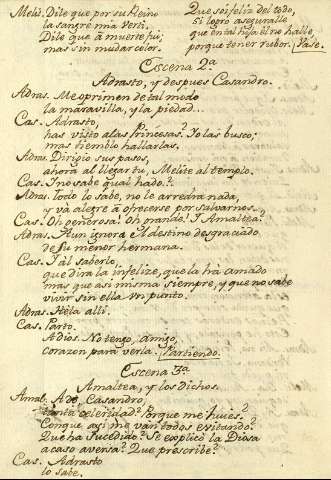 Meli. Dile que por su Reino
la sangre mia vertí.
Dile que á muerte fuí;
mas sin mudar color.
Que soi feliz del todo,
si logro aseguralle
que en tal hija el no halle,
porque tener rubor. Vase.
Escena 2.ª
Adrasto, y despues Casandro.
Adras. Me oprimen de tal modo
la maravilla, y la piedad...
Cas. Adrasto,
has visto a las Princesas? Yo las busco;
mas tiemblo hallarlas.
Adras. Dirigio sus pasos,
ahora al llegar tu, Melite al templo.
Cas. I no sabe qual hado?
Adras. Todo lo sabe, no le arredra nada,
y vá alegre á ofrecerse por salvarnos.
Cas. Oh generosa! Oh grande! I Amaltea?
Adras. Aun ignora el destino desgraciado
de su menor hermana.
Cas. I al saberlo,
que dira la infelize, que la há amado
mas que asi misma siempre, y que no sabe
vivir sin ella un punto.
Adras. Hela alli.
Cas. Parto.
A dios. No tengo, amigo,
corazon para verla. Partiendo.
Escena 3.ª
Amaltea, y los dichos.
Amal. Casandro,
tanta celeridad? Porque me huies?
Conque asi me ván todos evitando?
Que ha sucedido? Se explicó la Diosa
acaso aversa? Que prescribe?
Cas. Adrasto
lo sabe.